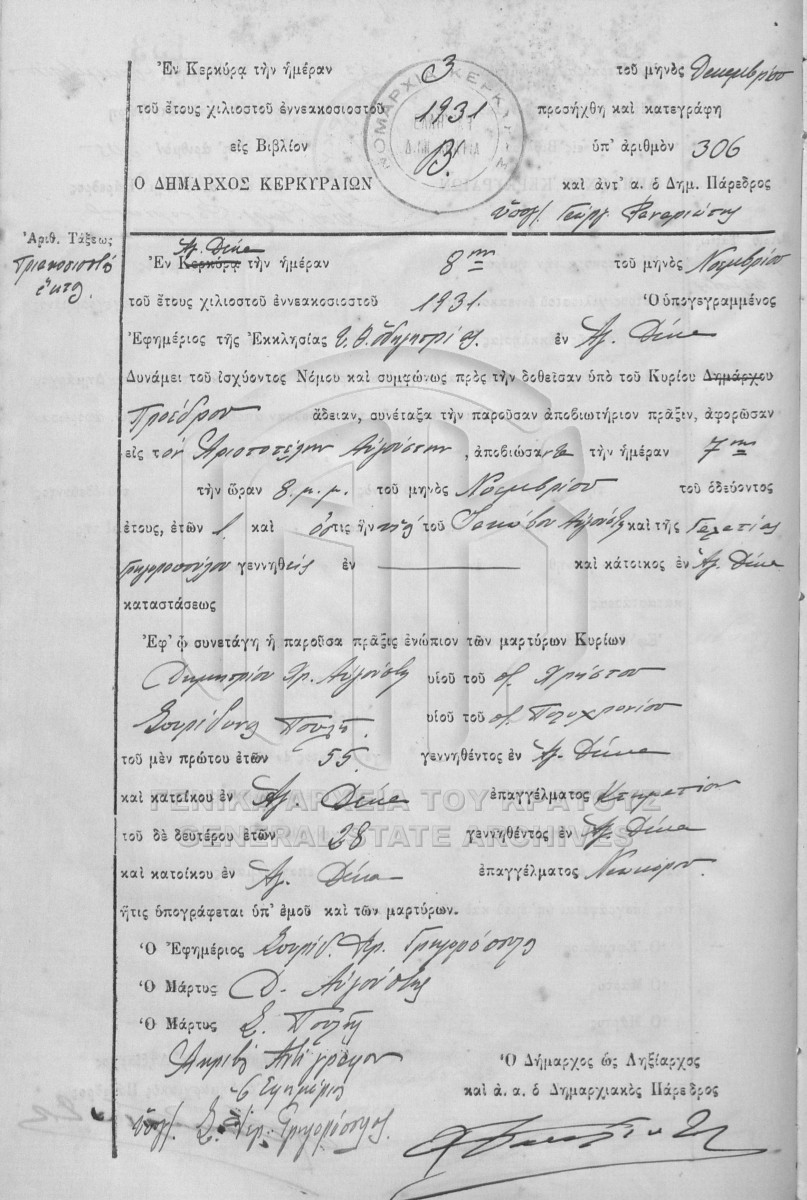 Ἐν Κερκύρᾳ τὴν ἡμέραν 3 τοῦ μηνὸς Δεκεμβρίου
τοῦ ἔτους χιλιοστοῦ ἐννεακοσιοστοῦ 1931 προσήχθη καὶ κατεγράφη
εἰς Βιβλίον Β. ὑπ' ἀριθμὸν 306
Ο ΔΗΜΑΡΧΟΣ ΚΕΡΚΥΡΑΙΩΝ καὶ ἀντ' α. ὁ Δημ. Πάρεδρος
ΝΟΜΑΡΧΙΑ ΚΕΡΚΥΡΑΣ
ὑπογρ. Γεώργ. Φαναριώτης
Ἀριθ. Τάξεως
Τριακοσιοστὸ
ἕκτο.
Ἁγ. Δέκα
Ἐν Κερκύρᾳ τὴν ἡμέραν 8ην τοῦ μηνὸς Νοεμβρίου
τοῦ ἔτους χιλιοστοῦ ἐννεακοσιοστοῦ 1931. Ὁ ὑπογεγραμμένος
Ἐφημέριος τῆς Ἐκκλησίας Υ. Θ. Ὁδηγητρίας ἐν Ἁγ. Δέκα
Δυνάμει τοῦ ἰσχύοντος Νόμου καὶ συμφώνως πρὸς τὴν δοθεῖσαν ὑπὸ τοῦ Κυρίου Δημάρχου
Προέδρου ἄδειαν, συνέταξα τὴν παροῦσαν ἀποβιωτήριον πρᾶξιν, ἀφορῶσαν
εἰς τὸν Ἀριστοτέλην Αὐγούστην, ἀποβιώσαντα τὴν ἡμέραν 7ην
τὴν ὥραν 8 μ.μ. τοῦ μηνὸς Νοεμβρίου τοῦ ὁδεύοντος
ἔτους, ἐτῶν 1 καὶ ὅστις ἦν υἱὸς τοῦ Ἰακώβου Αὐγούστη καὶ τῆς Γαλατίας
Γρηγοροπούλου γεννηθεὶς ἐν καὶ κάτοικος ἐν Ἁγ. Δέκα
καταστάσεως
Ἐφ' ᾧ συνετάγη ἡ παροῦσα πρᾶξις ἐνώπιον τῶν μαρτύρων Κυρίων
Δημητρίου Χρ. Αὐγούστη υἱοῦ τοῦ Χρήστου
Σπυρίδωνος Πουλῆ υἱοῦ τοῦ Πολυχρονίου
τοῦ μὲν πρώτου ἐτῶν 55 γεννηθέντος ἐν Ἁγ. Δέκα
καὶ κατοίκου ἐν Ἁγ. Δέκα ἐπαγγέλματος Κτηματίου
ΓΕΝΙΚΑ ΑΡΧΕΙΑ ΤΟΥ ΚΡΑΤΟΥΣ
τοῦ δὲ δευτέρου ἐτῶν 28 γεννηθέντος ἐν Ἁγ. Δέκα
GENERAL STATE ARCHIVES
καὶ κατοίκου ἐν Ἁγ. Δέκα ἐπαγγέλματος Νεωκόρου
ἥτις ὑπογράφεται ὑπ' ἐμοῦ καὶ τῶν μαρτύρων.
Ὁ Ἐφημέριος Σπυρίδ. Ἱερ. Γρηγορόπουλος
Ὁ Μάρτυς Δ. Αὐγούστης
Ὁ Μάρτυς Σ. Πουλῆς
Ἀκριβὲς Ἀντίγραφον Ὁ Δήμαρχος ὡς Ληξίαρχος
Ὁ Ἐφημέριος καὶ ἀ. α. ὁ Δημαρχιακὸς Πάρεδρος
ὑπογρ. Σ. Ἱερ. Γρηγορόπουλος